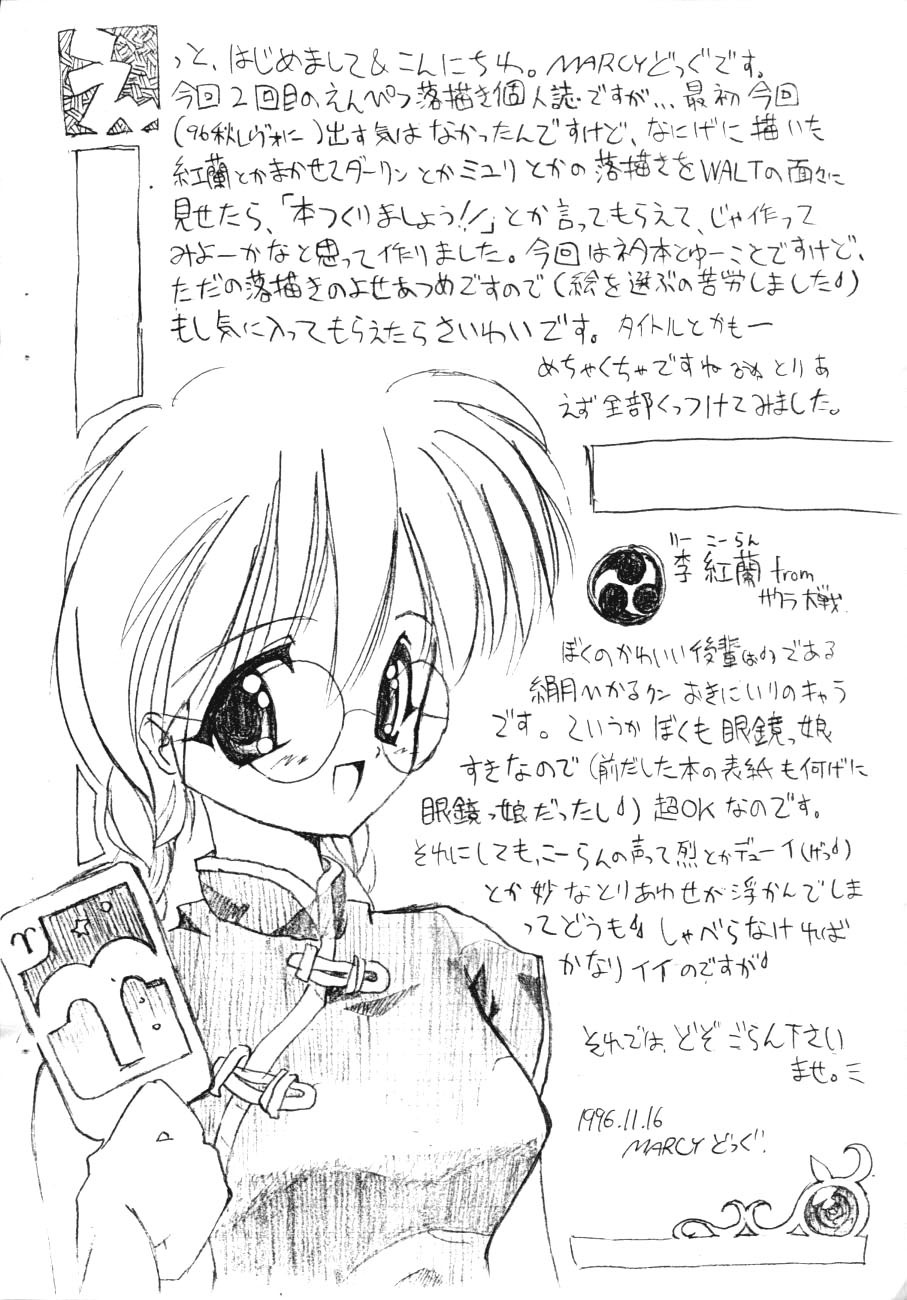 えっと、はじめまして&こんにちわ。MARCYどっぐです。
今回2回目のえんぴつ落描き個人誌ですが...最初今回
(96秋レヴォに)出す気はなかったんですけど、なにげに描いた
紅蘭とかまかせてダーリンとかミユリとかの落描きをWALTの面々に
見せたら、「本つくりましょう!!」とか言ってもらえて、じゃ作って
みよーかなと思って作りました。今回はネタ本とゆーことですけど、
ただの落描きのよせあつめですので(絵を選ぶの苦労しました♪)
もし気に入ってもらえたらさいわいです。タイトルとかもー
めちゃくちゃですね とりあ
えず全部くっつけてみました。
リー こーらん
李 紅蘭 from
サクラ大戦.
ぼくのかわいい後輩(はぁと)である
絹月いかるクン おきにいりのキャラ
です。というか ぼくも眼鏡っ娘
すきなので(前だした本の表紙も何げに
眼鏡っ娘だったし♪)超OKなのです。
それにしても、こーらんの声って烈とかデューイ(げっ♪)
とか妙なとりあわせが浮かんでしま
ってどうも♪ しゃべらなければ
かなりイイのですが♪
それでは、どぞ ごらん下さい
ませ。
1996.11.16
MARCYどっぐ.